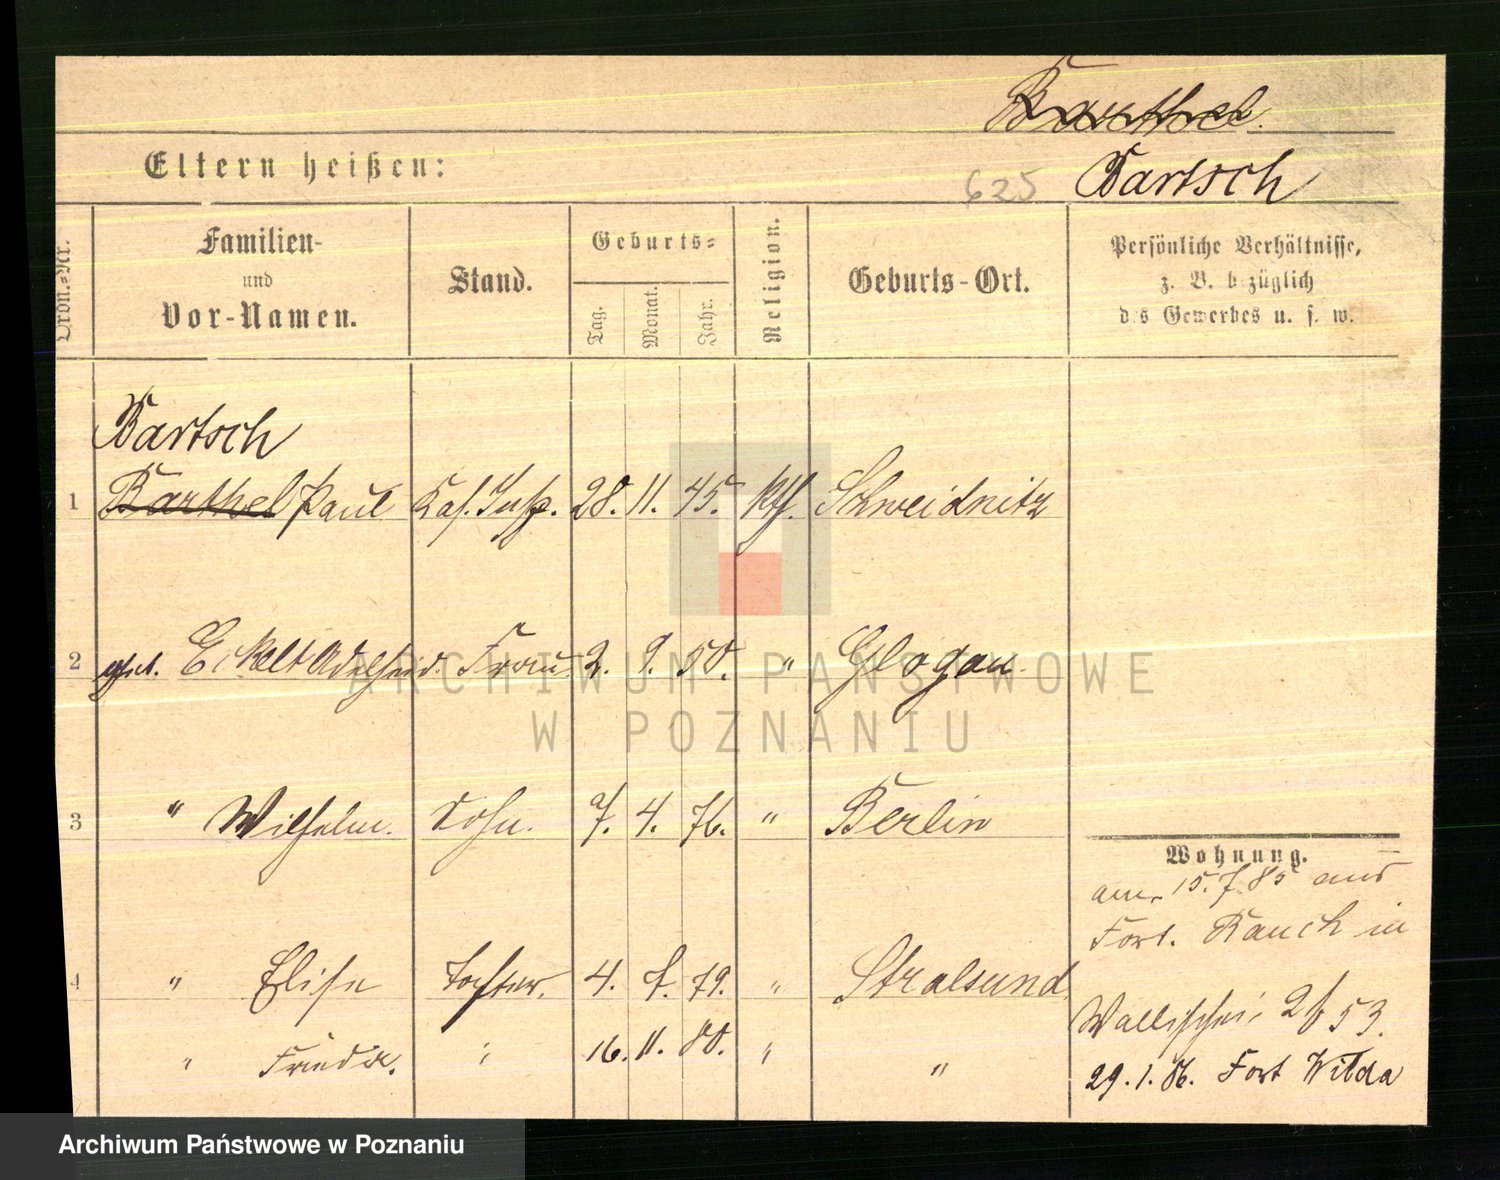 Barthel.
Eltern heißen:
625 Bartsch
Ordn.-Nr.
Familien-
und
Vor-Namen.
Stand.
Geburts-
Tag.
Monat.
Jahr.
Religion.
Geburts-Ort.
Persönliche Verhältnisse,
z. B. bezüglich
des Gewerbes u. s. w.
Bartsch
1 Barthel Paul Kas. Insp. 28. 11. 45. kth. Schweidnitz
2 geb. Eckelt Adelheid. Frau 2. 9. 50. " Glogau
3 " Wilhelm. Sohn. 7. 4. 76. " Berlin
4 " Elise Tochter. 4. 7. 79. " Stralsund
" Friedr. " 16. 11. 80. " "
Wohnung.
am 15.7 85 aus
Fort. Rauch in
Wallischei 2b 53.
29. 1. 86. Fort Wilda
ARCHIWUM PAŃSTWOWE
W POZNANIU
Archiwum Państwowe w Poznaniu